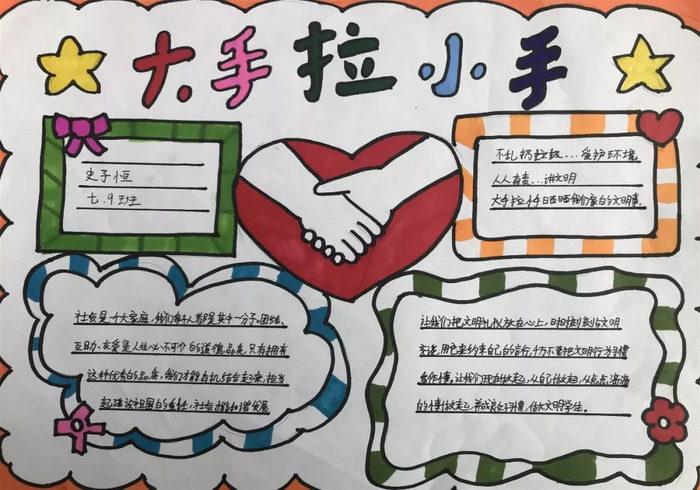 大手拉小手
史子恒
七.9班
不乱扔垃圾...爱护环境
人人有责...讲文明
大手拉小手日晒晒我们家的文明事.
社会是一个大家庭,我们每个人都是其中一分子,团结、
互助、友爱是人生必不可少的道德品质,只有拥有
这种优秀的品质,我们才能有机结合起来,担当
起建设祖国的责任,社会才能和谐发展
让我们把文明礼仪放在心上,时时刻刻与文明
交谈,用它来约束自己的言行,千万不要把文明行为习惯
看作小事。让我们现在做起,从自己做起,从点点滴滴
的小事做起,养成良好习惯,做文明学生。